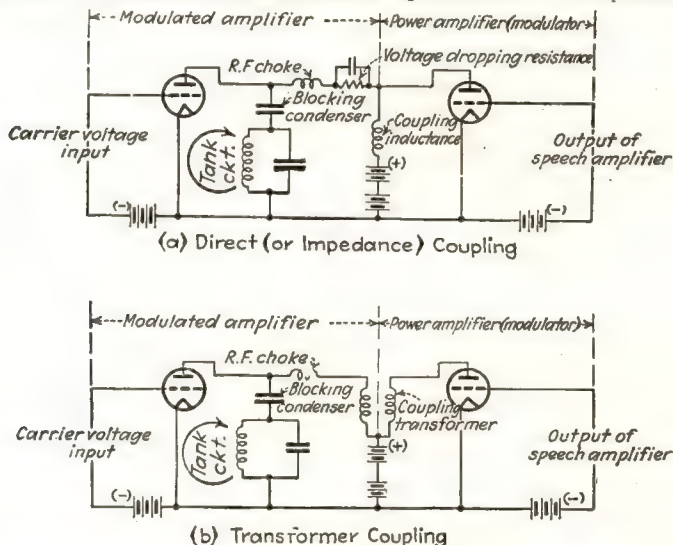 Modulated amplifier
Power amplifier (modulator)
R.F. choke
Voltage dropping resistance
Blocking
condenser
Coupling
inductance
Carrier voltage
input
Tank
ckt.
(+)
Output of
speech amplifier
(-)
(-)
(a) Direct (or Impedance) Coupling
Modulated amplifier
Power amplifier (modulator)
R.F. choke
Blocking
condenser
Coupling
transformer
Carrier voltage
input
Tank
ckt.
(+)
Output of
speech amplifier
(-)
(-)
(b) Transformer Coupling